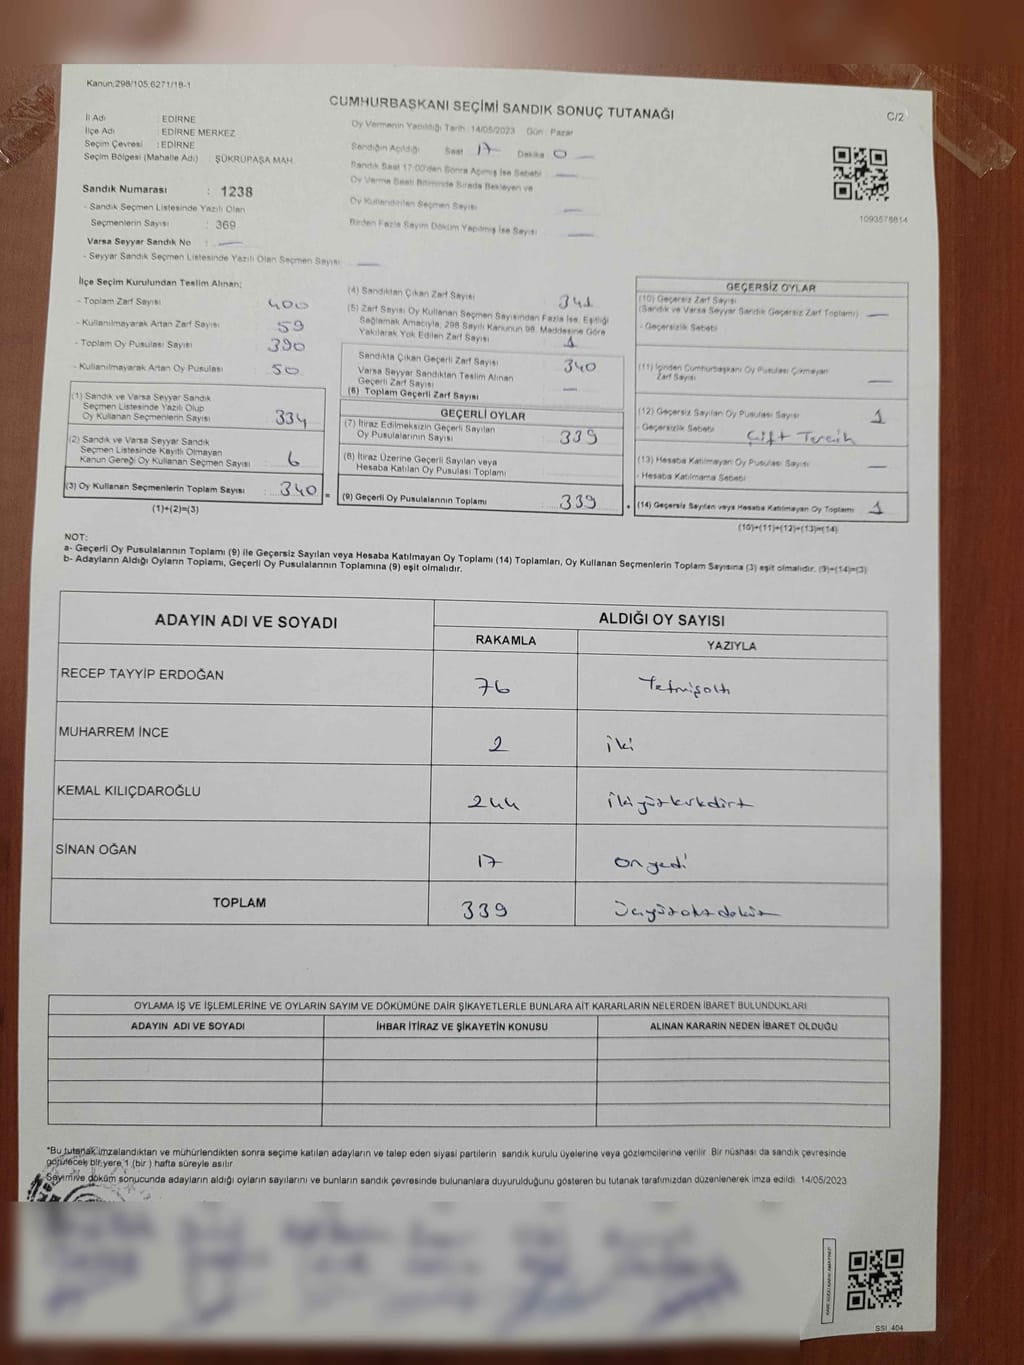 Kanun,298/105,6271/18-1
CUMHURBAŞKANI SEÇİMİ SANDIK SONUÇ TUTANAĞI
C/2
İl Adı : EDİRNE
İlçe Adı : EDİRNE MERKEZ
Seçim Çevresi : EDİRNE
Seçim Bölgesi (Mahalle Adı) : ŞÜKRÜPAŞA MAH.
Sandık Numarası : 1238
- Sandık Seçmen Listesinde Yazılı Olan
Seçmenlerin Sayısı : 369
Varsa Seyyar Sandık No : —
- Seyyar Sandık Seçmen Listesinde Yazılı Olan Seçmen Sayısı —
Oy Vermenin Yapıldığı Tarih : 14/05/2023 Gün : Pazar
Sandığın Açıldığı Saat 17 Dakika 0 —
Sandık Saat 17:00'den Sonra Açılmış İse Sebebi —
Oy Verme Saati Bitiminde Sırada Bekleyen ve
Oy Kullandırılan Seçmen Sayısı —
Birden Fazla Sayım Döküm Yapılmış İse Sayısı —
1093578814
İlçe Seçim Kurulundan Teslim Alınan;
- Toplam Zarf Sayısı 400
- Kullanılmayarak Artan Zarf Sayısı 59
- Toplam Oy Pusulası Sayısı 390
- Kullanılmayarak Artan Oy Pusulası 50
(1) Sandık ve Varsa Seyyar Sandık
Seçmen Listesinde Yazılı Olup
Oy Kullanan Seçmenlerin Sayısı 334
(2) Sandık ve Varsa Seyyar Sandık
Seçmen Listesinde Kayıtlı Olmayan
Kanun Gereği Oy Kullanan Seçmen Sayısı 6
(3) Oy Kullanan Seçmenlerin Toplam Sayısı 340 =
(1)+(2)=(3)
(4) Sandıktan Çıkan Zarf Sayısı 341
(5) Zarf Sayısı Oy Kullanan Seçmen Sayısından Fazla İse, Eşitliği
Sağlamak Amacıyla, 298 Sayılı Kanunun 98. Maddesine Göre
Yakılarak Yok Edilen Zarf Sayısı 1
Sandıkta Çıkan Geçerli Zarf Sayısı 340
Varsa Seyyar Sandıktan Teslim Alınan
Geçerli Zarf Sayısı —
(6) Toplam Geçerli Zarf Sayısı
GEÇERLİ OYLAR
(7) İtiraz Edilmeksizin Geçerli Sayılan
Oy Pusulalarının Sayısı 339
(8) İtiraz Üzerine Geçerli Sayılan veya
Hesaba Katılan Oy Pusulası Toplamı
(9) Geçerli Oy Pusulalarının Toplamı 339 +
GEÇERSİZ OYLAR
(10) Geçersiz Zarf Sayısı
(Sandık ve Varsa Seyyar Sandık Geçersiz Zarf Toplamı) —
- Geçersizlik Sebebi
(11) İçinden Cumhurbaşkanı Oy Pusulası Çıkmayan
Zarf Sayısı —
(12) Geçersiz Sayılan Oy Pusulası Sayısı 1
- Geçersizlik Sebebi Çift Tercih
(13) Hesaba Katılmayan Oy Pusulası Sayısı —
- Hesaba Katılmama Sebebi
(14) Geçersiz Sayılan veya Hesaba Katılmayan Oy Toplamı 1
(10)+(11)+(12)+(13)=(14)
NOT:
a- Geçerli Oy Pusulalarının Toplamı (9) ile Geçersiz Sayılan veya Hesaba Katılmayan Oy Toplamı (14) Toplamları, Oy Kullanan Seçmenlerin Toplam Sayısına (3) eşit olmalıdır. (9)+(14)=(3)
b- Adayların Aldığı Oyların Toplamı, Geçerli Oy Pusulalarının Toplamına (9) eşit olmalıdır.
ADAYIN ADI VE SOYADI
ALDIĞI OY SAYISI
RAKAMLA YAZIYLA
RECEP TAYYİP ERDOĞAN 76 Yetmişaltı
MUHARREM İNCE 2 iki
KEMAL KILIÇDAROĞLU 244 ikiyüzkırkdört
SİNAN OĞAN 17 onyedi
TOPLAM 339 üçyüzotuzdokuz
OYLAMA İŞ VE İŞLEMLERİNE VE OYLARIN SAYIM VE DÖKÜMÜNE DAİR ŞİKAYETLERLE BUNLARA AİT KARARLARIN NELERDEN İBARET BULUNDUKLARI
ADAYIN ADI VE SOYADI İHBAR İTİRAZ VE ŞİKAYETİN KONUSU ALINAN KARARIN NEDEN İBARET OLDUĞU
*Bu tutanak imzalandıktan ve mühürlendikten sonra seçime katılan adayların ve talep eden siyasi partilerin sandık kurulu üyelerine veya gözlemcilerine verilir. Bir nüshası da sandık çevresinde
görülecek bir yere 1 (bir ) hafta süreyle asılır.
Sayım ve döküm sonucunda adayların aldığı oyların sayılarını ve bunların sandık çevresinde bulunanlara duyurulduğunu gösteren bu tutanak tarafımızdan düzenlenerek imza edildi. 14/05/2023
SSI 404